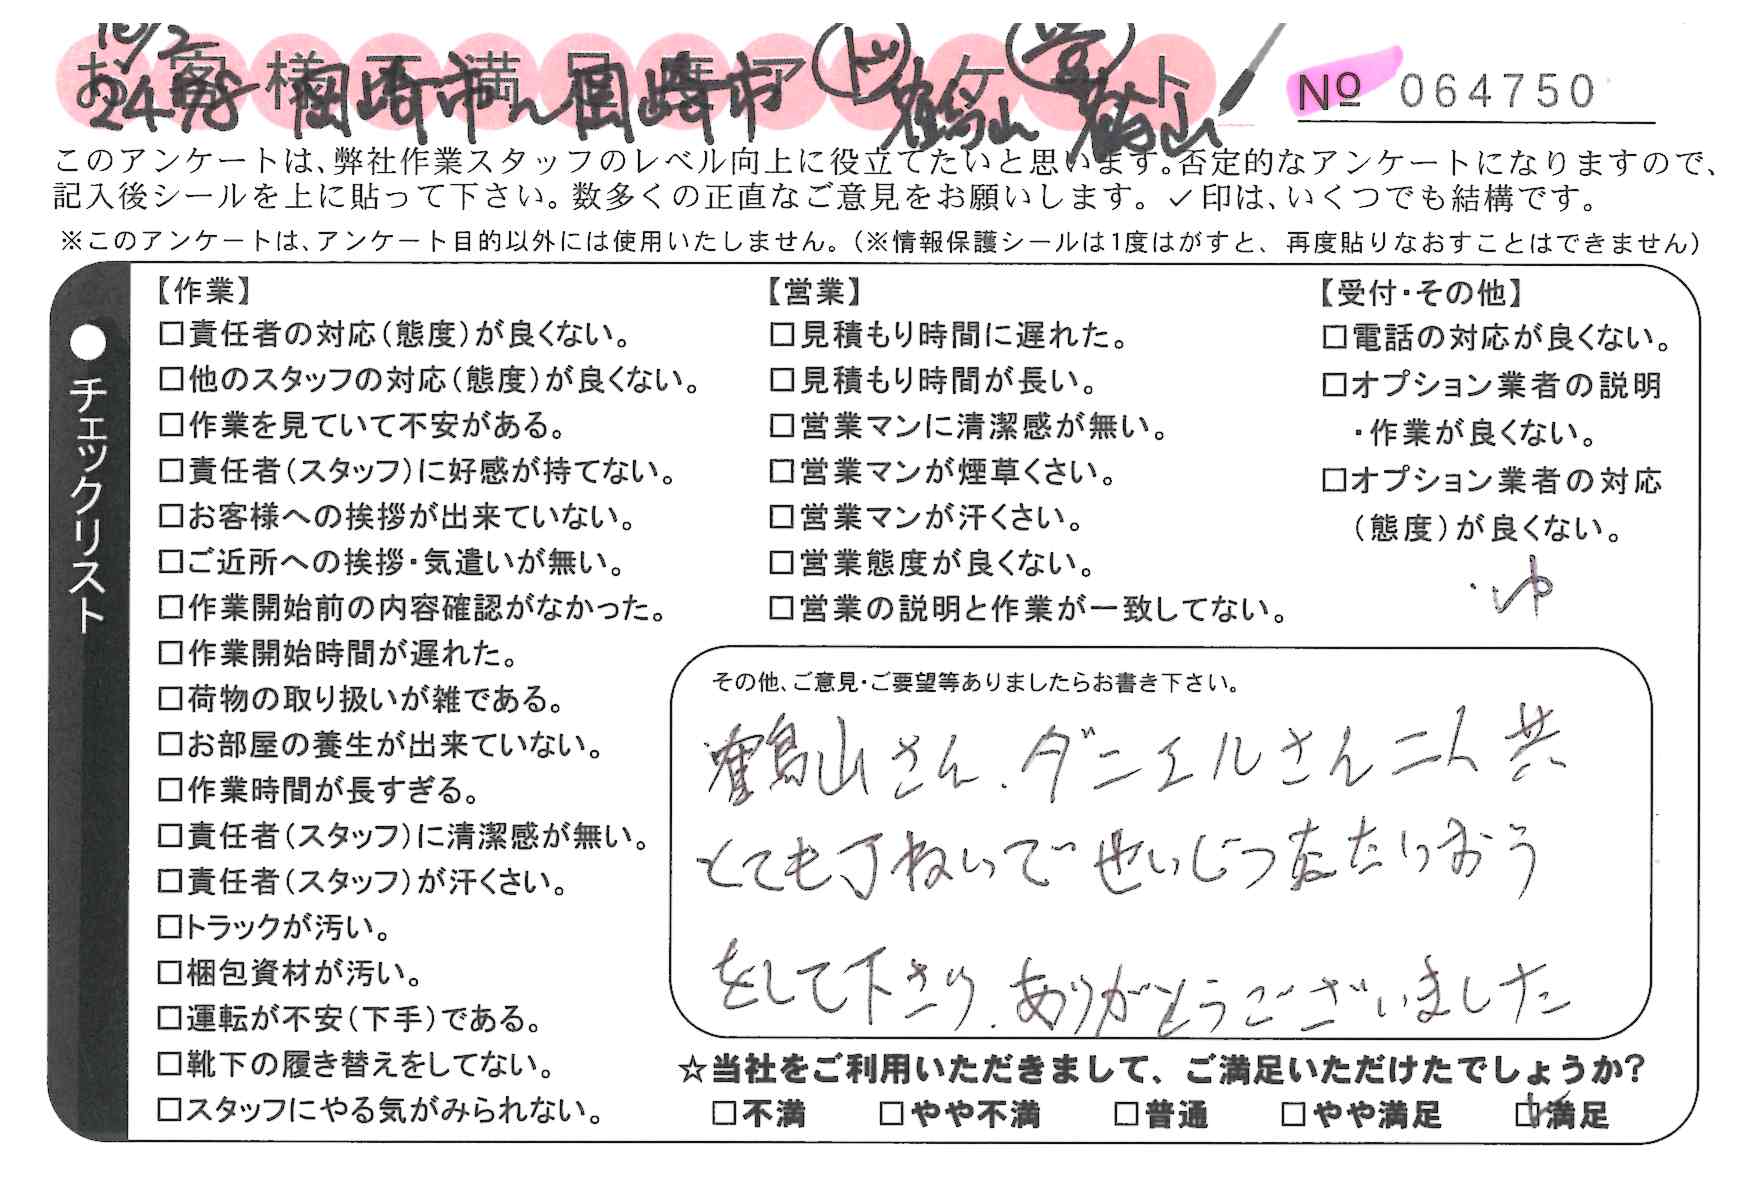 10/2
お客様不満足度アンケート
2498 岡崎市〜岡崎市 ド 鶴山 営 鶴山
№ 064750
このアンケートは、弊社作業スタッフのレベル向上に役立てたいと思います。否定的なアンケートになりますので、
記入後シールを上に貼って下さい。数多くの正直なご意見をお願いします。✓印は、いくつでも結構です。
※このアンケートは、アンケート目的以外には使用いたしません。（※情報保護シールは1度はがすと、再度貼りなおすことはできません）
●チェックリスト
【作業】
□責任者の対応（態度）が良くない。
□他のスタッフの対応（態度）が良くない。
□作業を見ていて不安がある。
□責任者（スタッフ）に好感が持てない。
□お客様への挨拶が出来ていない。
□ご近所への挨拶・気遣いが無い。
□作業開始前の内容確認がなかった。
□作業開始時間が遅れた。
□荷物の取り扱いが雑である。
□お部屋の養生が出来ていない。
□作業時間が長すぎる。
□責任者（スタッフ）に清潔感が無い。
□責任者（スタッフ）が汗くさい。
□トラックが汚い。
□梱包資材が汚い。
□運転が不安（下手）である。
□靴下の履き替えをしてない。
□スタッフにやる気がみられない。
【営業】
□見積もり時間に遅れた。
□見積もり時間が長い。
□営業マンに清潔感が無い。
□営業マンが煙草くさい。
□営業マンが汗くさい。
□営業態度が良くない。
□営業の説明と作業が一致してない。
【受付・その他】
□電話の対応が良くない。
□オプション業者の説明
・作業が良くない。
□オプション業者の対応
（態度）が良くない。
その他、ご意見・ご要望等ありましたらお書き下さい。
鶴山さん、ダニエルさん二人共
とても丁ねいでせいじつなたいおう
をして下さり、ありがとうございました
☆当社をご利用いただきまして、ご満足いただけたでしょうか？
□不満 □やや不満 □普通 □やや満足 ☑満足